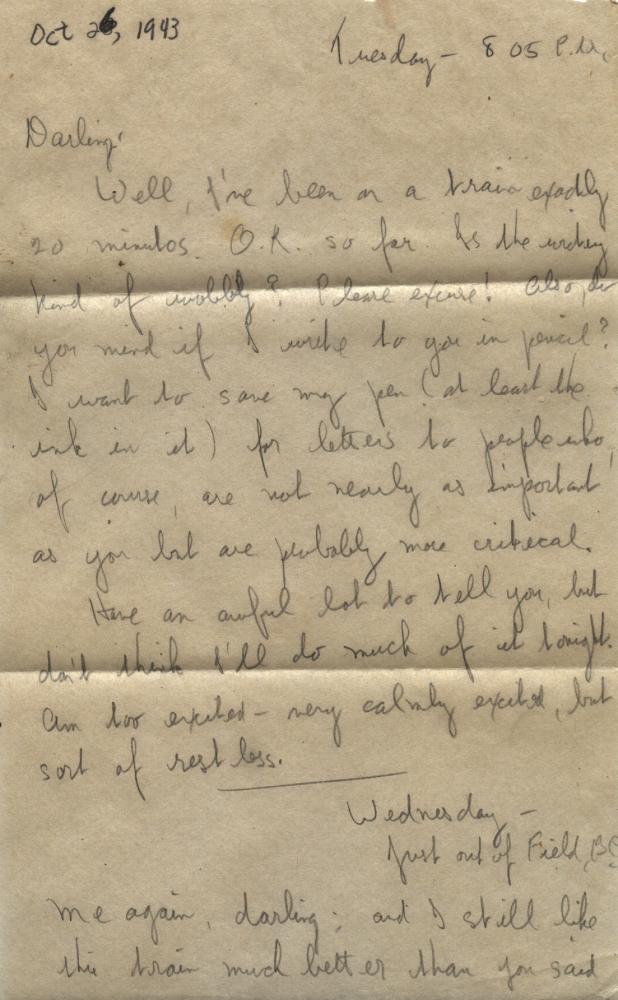 Oct 26, 1943
Tuesday – 8 05 P.M.
Darling:
Well, I've been on a train exactly
20 minutes. O.K. so far. Is the writing
kind of wobbly? Please excuse! Also, do
you mind if I write to you in pencil?
I want to save my pen (at least the
ink in it) for letters to people who,
of course, are not nearly as important
as you but are probably more critical.
Have an awful lot to tell you, but
don't think I'll do much of it tonight.
Am too excited – very calmly excited, but
sort of restless.
Wednesday –
Just out of Field, BC
Me again, darling; and I still like
this train much better than you said